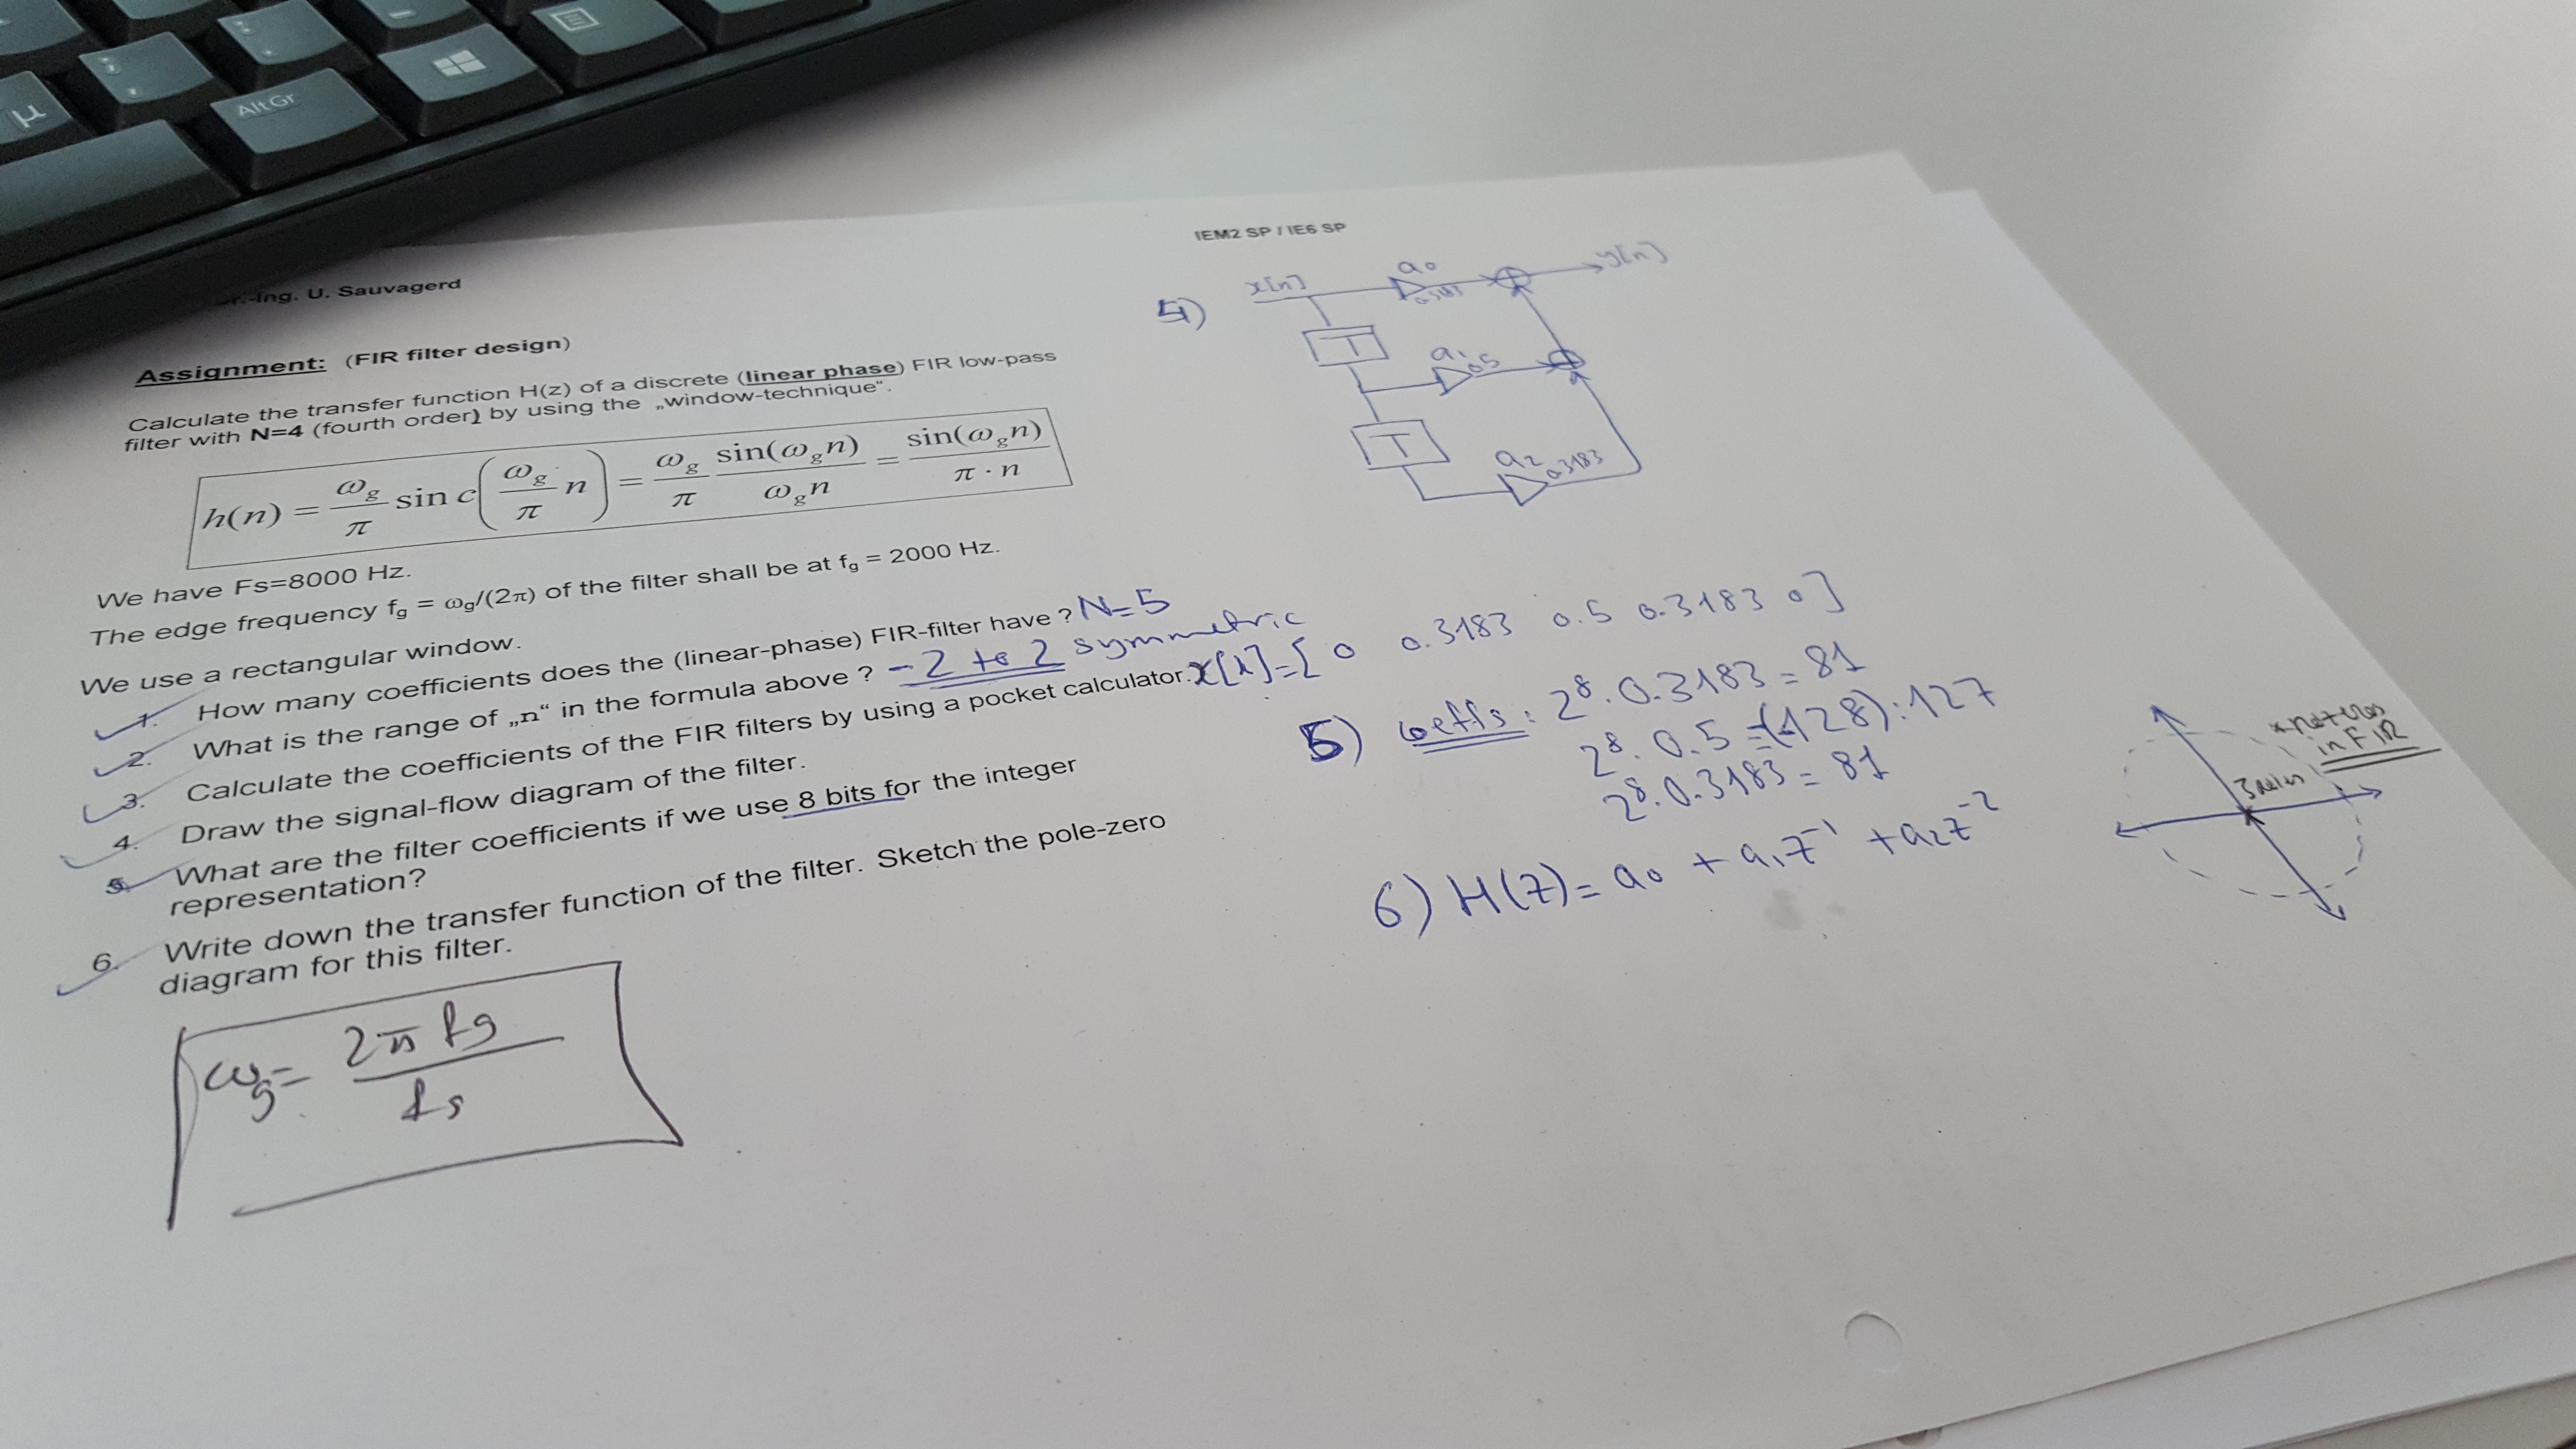 µ
AltGr
IEM2 SP / IE6 SP
-Ing. U. Sauvagerd
Assignment: (FIR filter design)
Calculate the transfer function H(z) of a discrete (linear phase) FIR low-pass
filter with N=4 (fourth order) by using the „window-technique“.
h(n) = ω_g/π sin c(ω_g/π n) = ω_g/π sin(ω_g n)/ω_g n = sin(ω_g n)/π · n
We have Fs=8000 Hz.
The edge frequency f_g = ω_g/(2π) of the filter shall be at f_g = 2000 Hz.
We use a rectangular window.
1. How many coefficients does the (linear-phase) FIR-filter have ? N=5
2. What is the range of „n“ in the formula above ? -2 to 2 symmetric
3. Calculate the coefficients of the FIR filters by using a pocket calculator. x[λ]=[ 0 0.3183 0.5 0.3183 0]
4. Draw the signal-flow diagram of the filter.
5. What are the filter coefficients if we use 8 bits for the integer
representation?
6. Write down the transfer function of the filter. Sketch the pole-zero
diagram for this filter.
ω_g = 2π f_g / f_s
4)
x[n] a_0 0.3183 y[n]
T
a_1 0.5
T
a_2 0.3183
5) coeffs: 2^8 . 0.3183 = 81
2^8 . 0.5 = (128): 127
2^8 . 0.3183 = 81
6) H(z) = a_0 + a_1 z^-1 + a_2 z^-2
in FIR